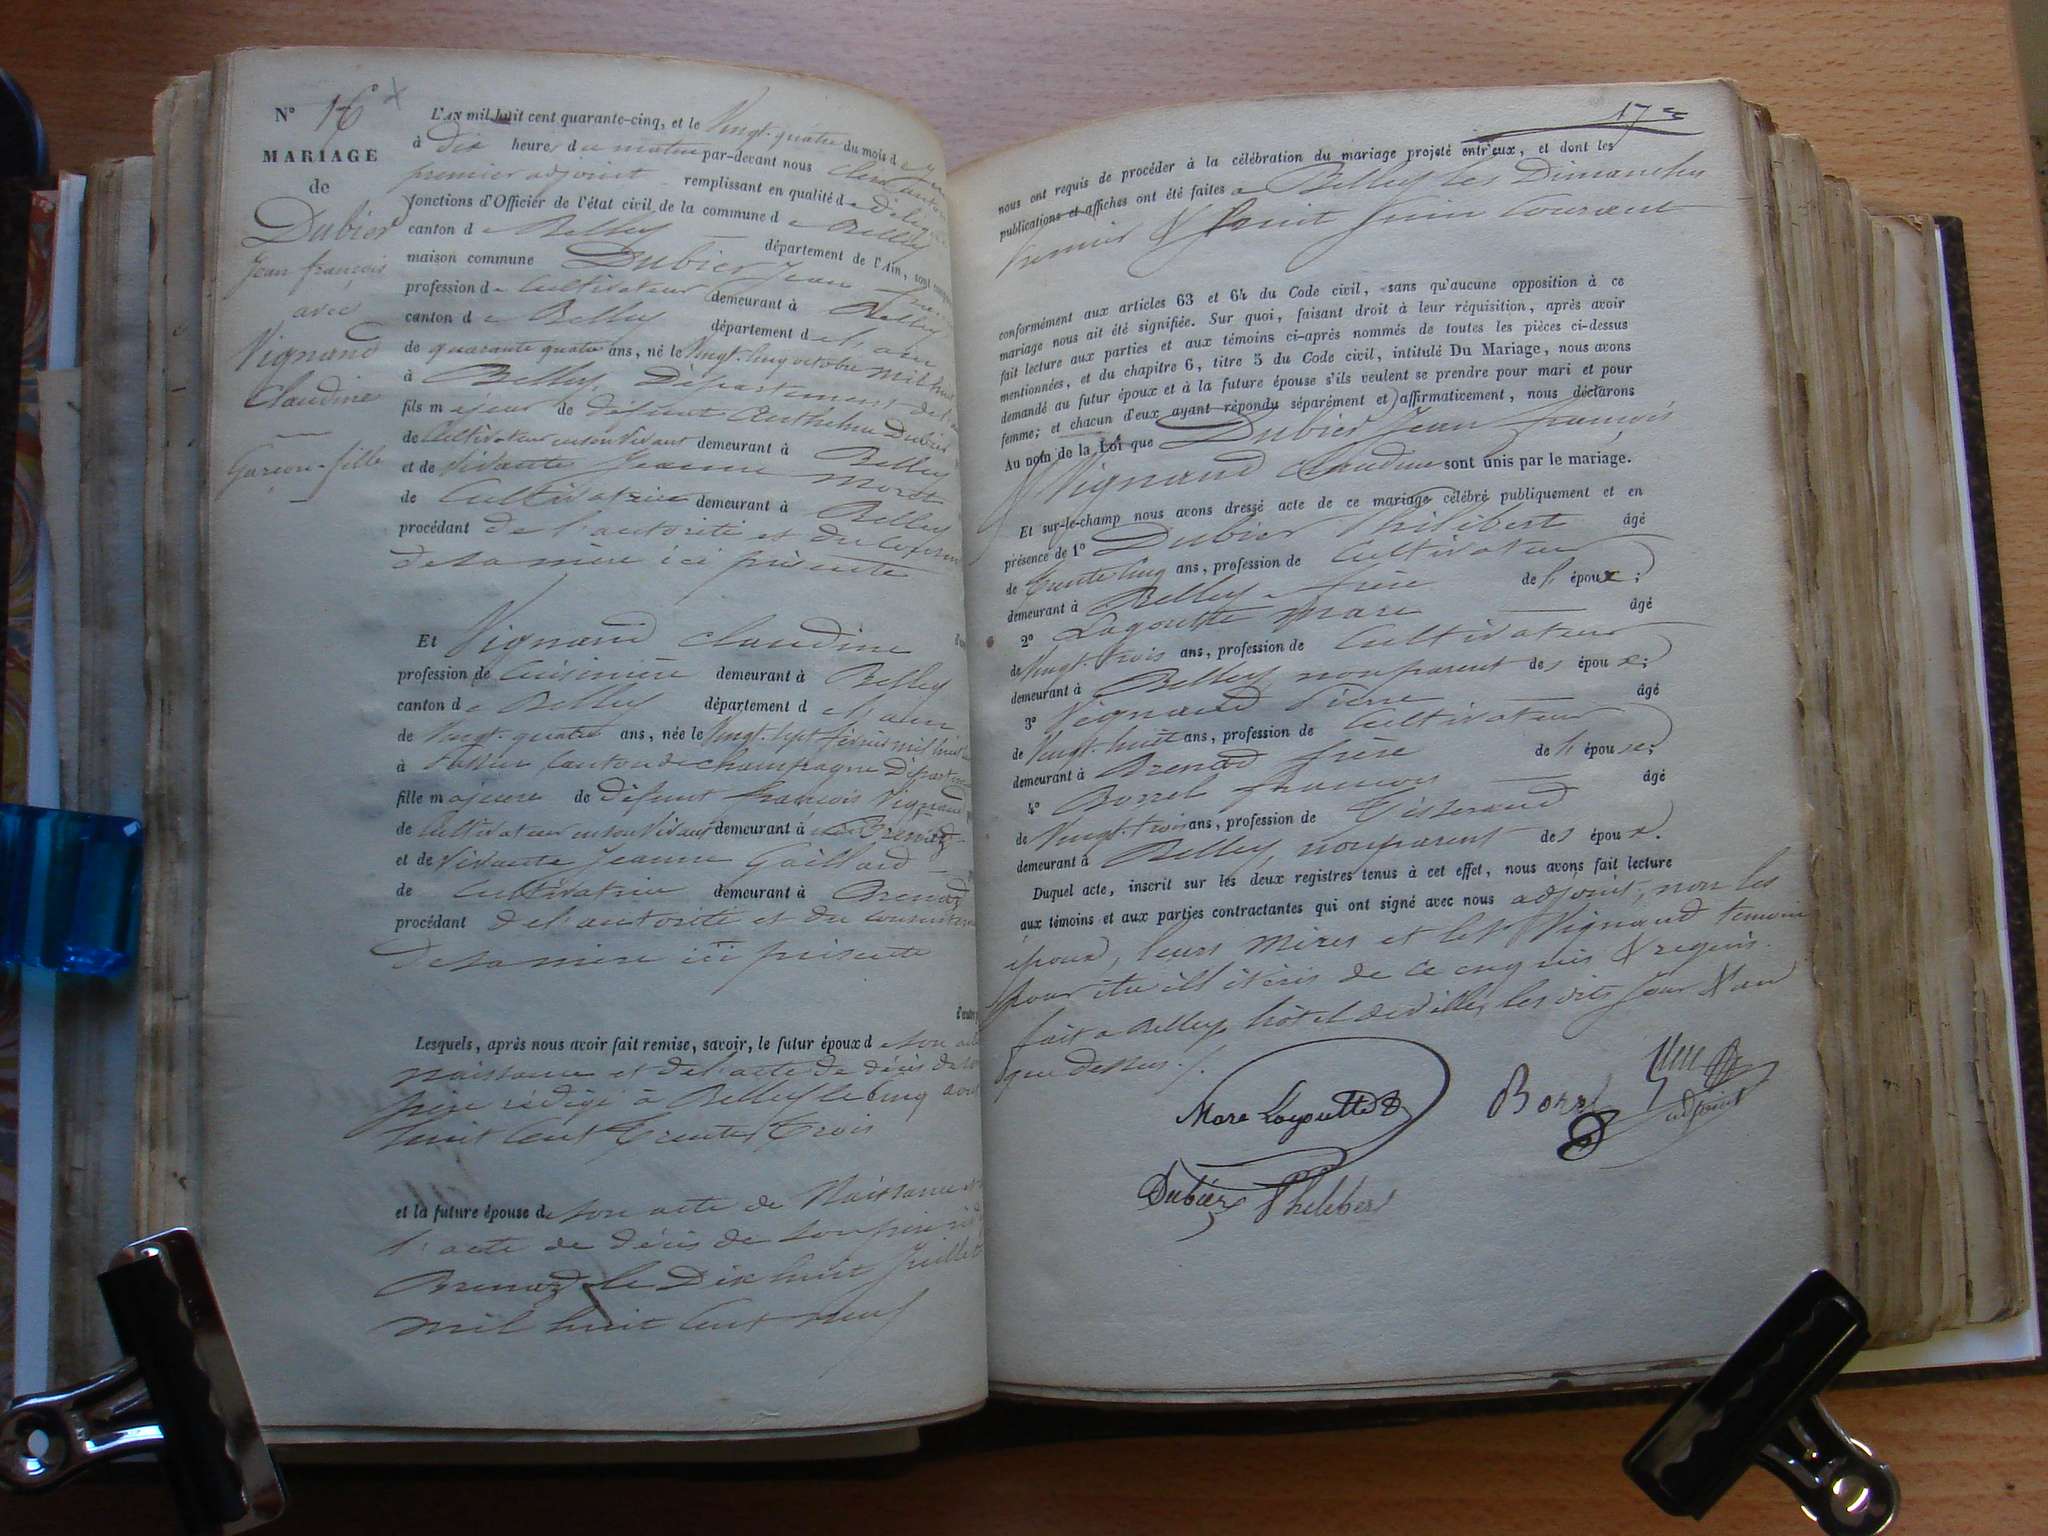 N° 16
MARIAGE
de
Dubier
Jean françois
avec
Vignand
Claudine
Garçon-fille
L'AN mil huit cent quarante-cinq, et le Vingt-quatre du mois de
à dix heures du matin par-devant nous
premier adjoint remplissant en qualité de
fonctions d'Officier de l'état civil de la commune de Belley
canton de Belley département de l'Ain, sont
maison commune Dubier Jean
profession de Cultivateur demeurant à Belley
canton de Belley département de l'ain
de quarante quatre ans, né le Vingt-cinq octobre mil huit
à Belley Département de l'
fils majeur de défunt Anthelme Dubier
de Cultivateur en son vivant demeurant à Belley
et de vivante Jeanne
de Cultivatrice demeurant à Belley
procédant de l'autorité et du
de sa mère ici présente
Et Vignand Claudine
profession de Cuisinière demeurant à Belley
canton de Belley département de l'ain
de Vingt-quatre ans, née le Vingt-sept février mil huit
à Canton de Champagne Départ
fille majeure de défunt françois Vignand
de Cultivateur en son vivant demeurant à Brenaz
et de vivante Jeanne Gaillard
de Cultivatrice demeurant à Brenaz
procédant de l'autorité et du consentem
de sa mère ici présente
Lesquels, après nous avoir fait remise, savoir, le futur époux de son
naissance et de l'acte de décès de
père rédigé à Belley le cinq
huit cent trente trois
et la future épouse de son acte de Naissance
l'acte de décès de son père
Brenaz le Dix huit Juillet
mil huit cent neuf
17
nous ont requis de procéder à la célébration du mariage projeté entr'eux, et dont les
publications et affiches ont été faites à Belley les Dimanches
Premier & huit Juin Courant
conformément aux articles 63 et 64 du Code civil, sans qu'aucune opposition à ce
mariage nous ait été signifiée. Sur quoi, faisant droit à leur réquisition, après avoir
fait lecture aux parties et aux témoins ci-après nommés de toutes les pièces ci-dessus
mentionnées, et du chapitre 6, titre 5 du Code civil, intitulé Du Mariage, nous avons
demandé au futur époux et à la future épouse s'ils veulent se prendre pour mari et pour
femme; et chacun d'eux ayant répondu séparément et affirmativement, nous déclarons
Au nom de la Loi que Dubier Jean françois
& Vignand Claudine sont unis par le mariage.
Et sur-le-champ nous avons dressé acte de ce mariage célébré publiquement et en
présence de 1° Dubier Philibert âgé
de trente cinq ans, profession de Cultivateur
demeurant à Belley frère de l'époux;
2° Lagoutte Marc âgé
de Vingt-trois ans, profession de Cultivateur
demeurant à Belley non parent des époux;
3° Vignand Pierre âgé
de Vingt-huit ans, profession de Cultivateur
demeurant à Brenaz frère de l'épouse;
4° Borrel françois âgé
de Vingt-trois ans, profession de Tisserand
demeurant à Belley non parent des époux.
Duquel acte, inscrit sur les deux registres tenus à cet effet, nous avons fait lecture
aux témoins et aux parties contractantes qui ont signé avec nous adjoint, non les
époux, leurs mères et le Sr Vignand témoin
pour être illitérés de ce enquis & requis.
fait à Belley, hôtel de ville, les dits jour & an
que dessus
Marc Lagoutte
Borrel
adjoint
Dubier Phelebert